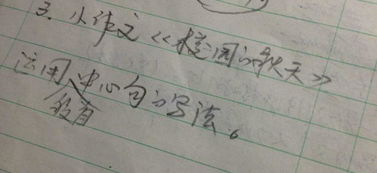 3. 小作文《校园的秋天》
运用没有中心句的写法。